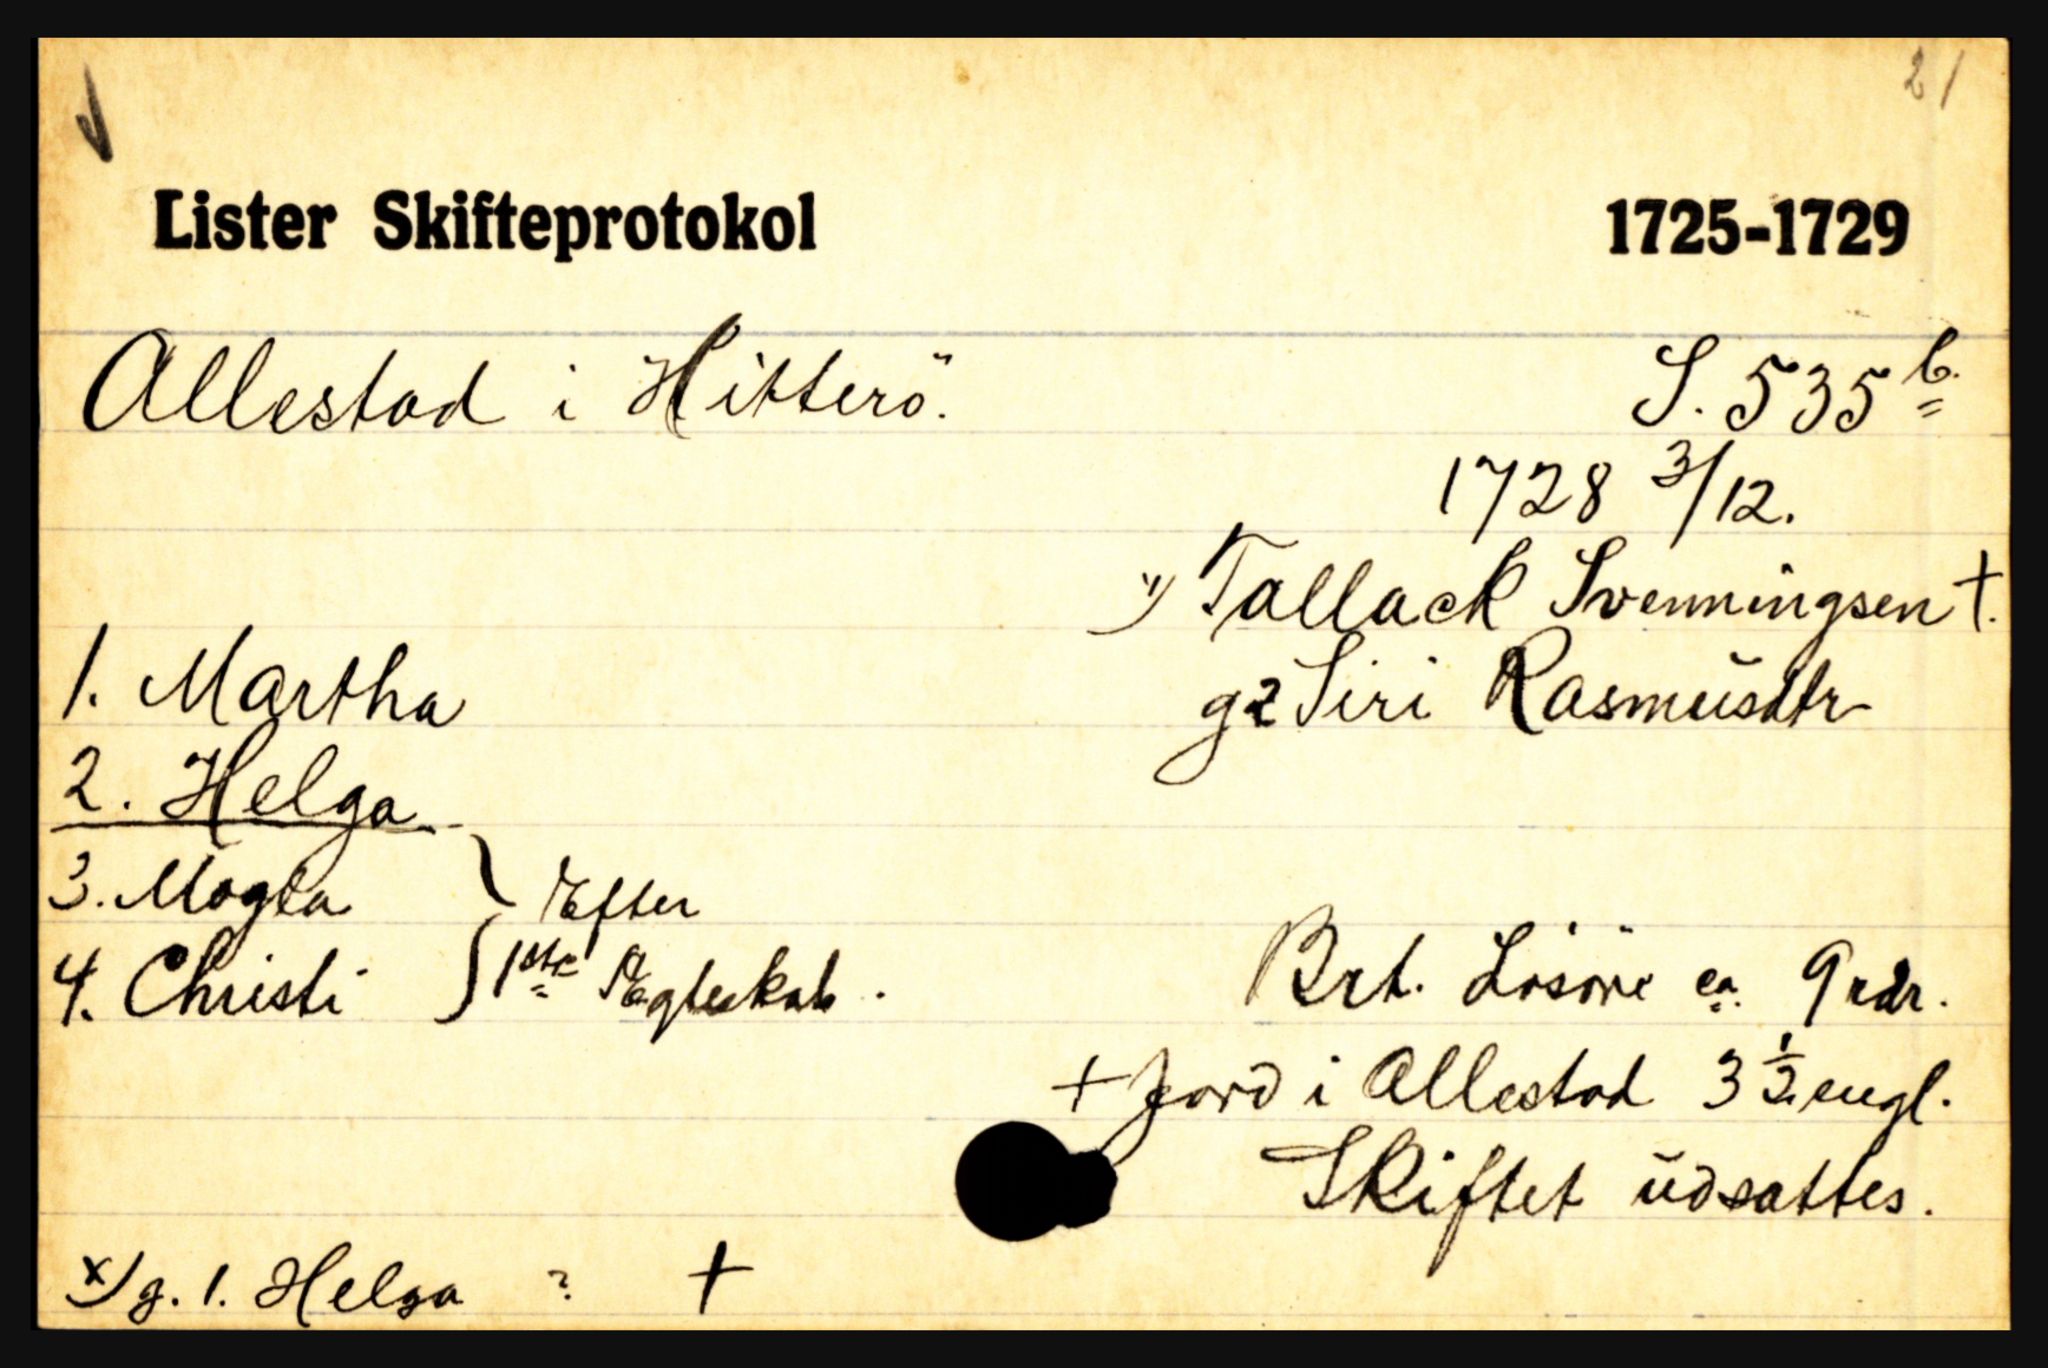 21
Lister Skifteprotokol 1725-1729
Allestad i Hitterö. S. 535 b.
1728 3/12.
x) Tallack Svenningsen †.
1. Martha g2 Siri Rasmusdtr
2. Helga
3. Magla } Efter
4. Christi } 1ste Ægteskab. Brt. Lösöre ca. 9 rdr.
+ Jord i Allestad 3 1/2 engl.
Skiftet udsattes.
x) g. 1. Helga ? †